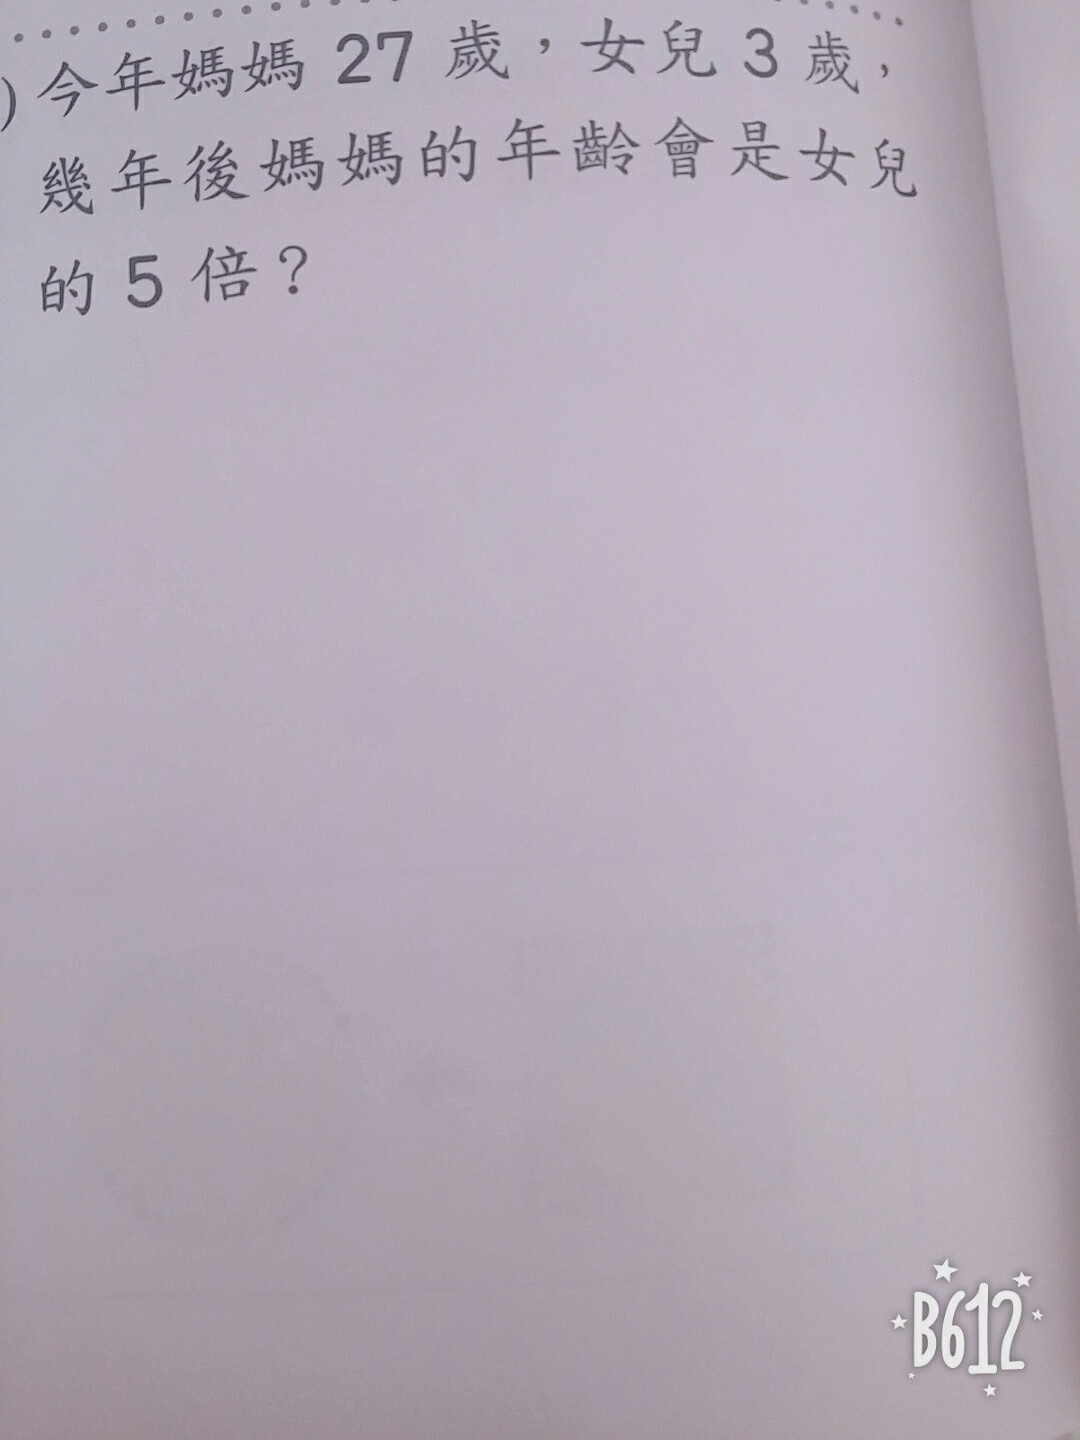 )今年媽媽 27 歲，女兒 3 歲，
幾年後媽媽的年齡會是女兒
的 5 倍？
B612